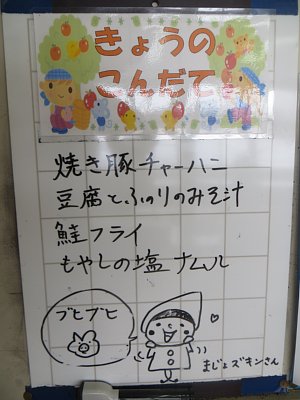 きょうの
こんだて
焼き豚チャーハン
豆腐とふのりのみそ汁
鮭フライ
もやしの塩ナムル
ブヒブヒ
まじょズキンさん